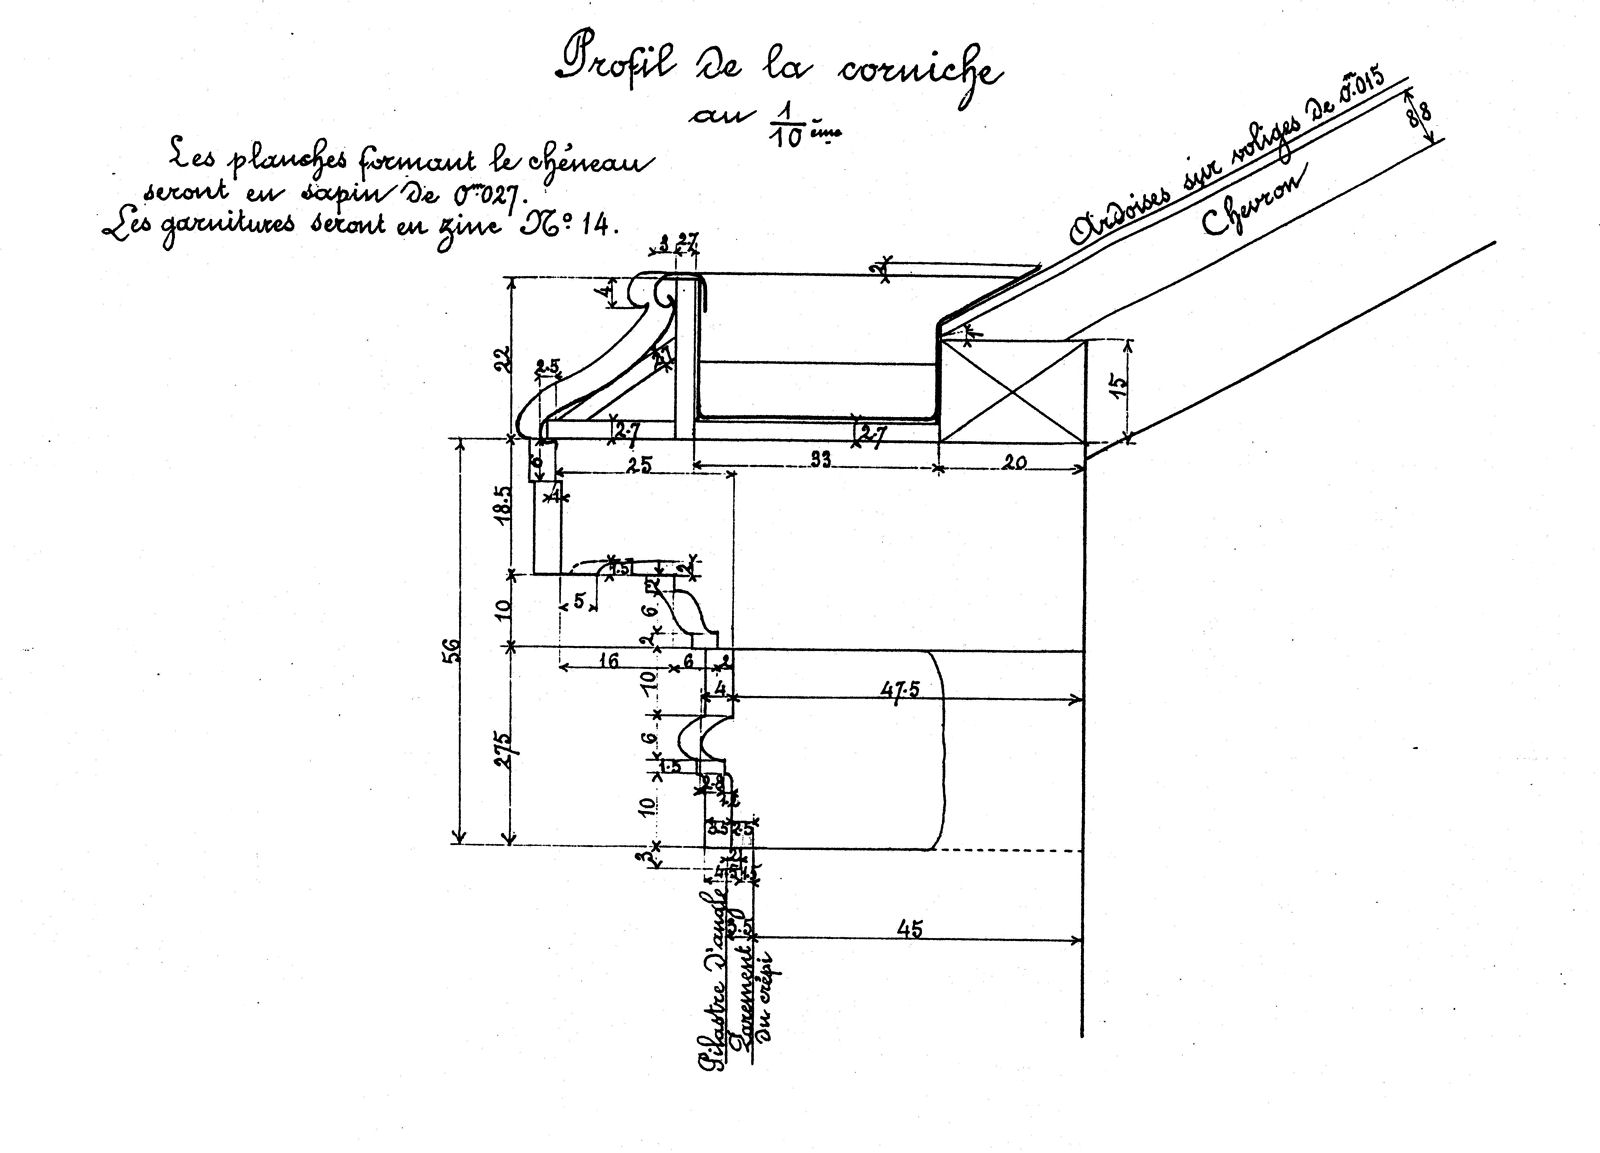 Profil de la corniche
au 1/10 ème
Les planches formant le chéneau
seront en sapin de 0m027.
Les garnitures seront en zinc No 14.
Ardoises sur voliges de 0m.015
Chevron
8/8
3
27
2
4
22
2.5
27
1
15
2.7
2.7
6
25
33
20
4
18.5
1.5
2
5
2
6
10
2
56
16
6
2
10
4
47.5
6
275
1.5
2.8
10
3.5
2.5
3
2
4
1.5
45
Pilastre d'angle
Parement
du crépi